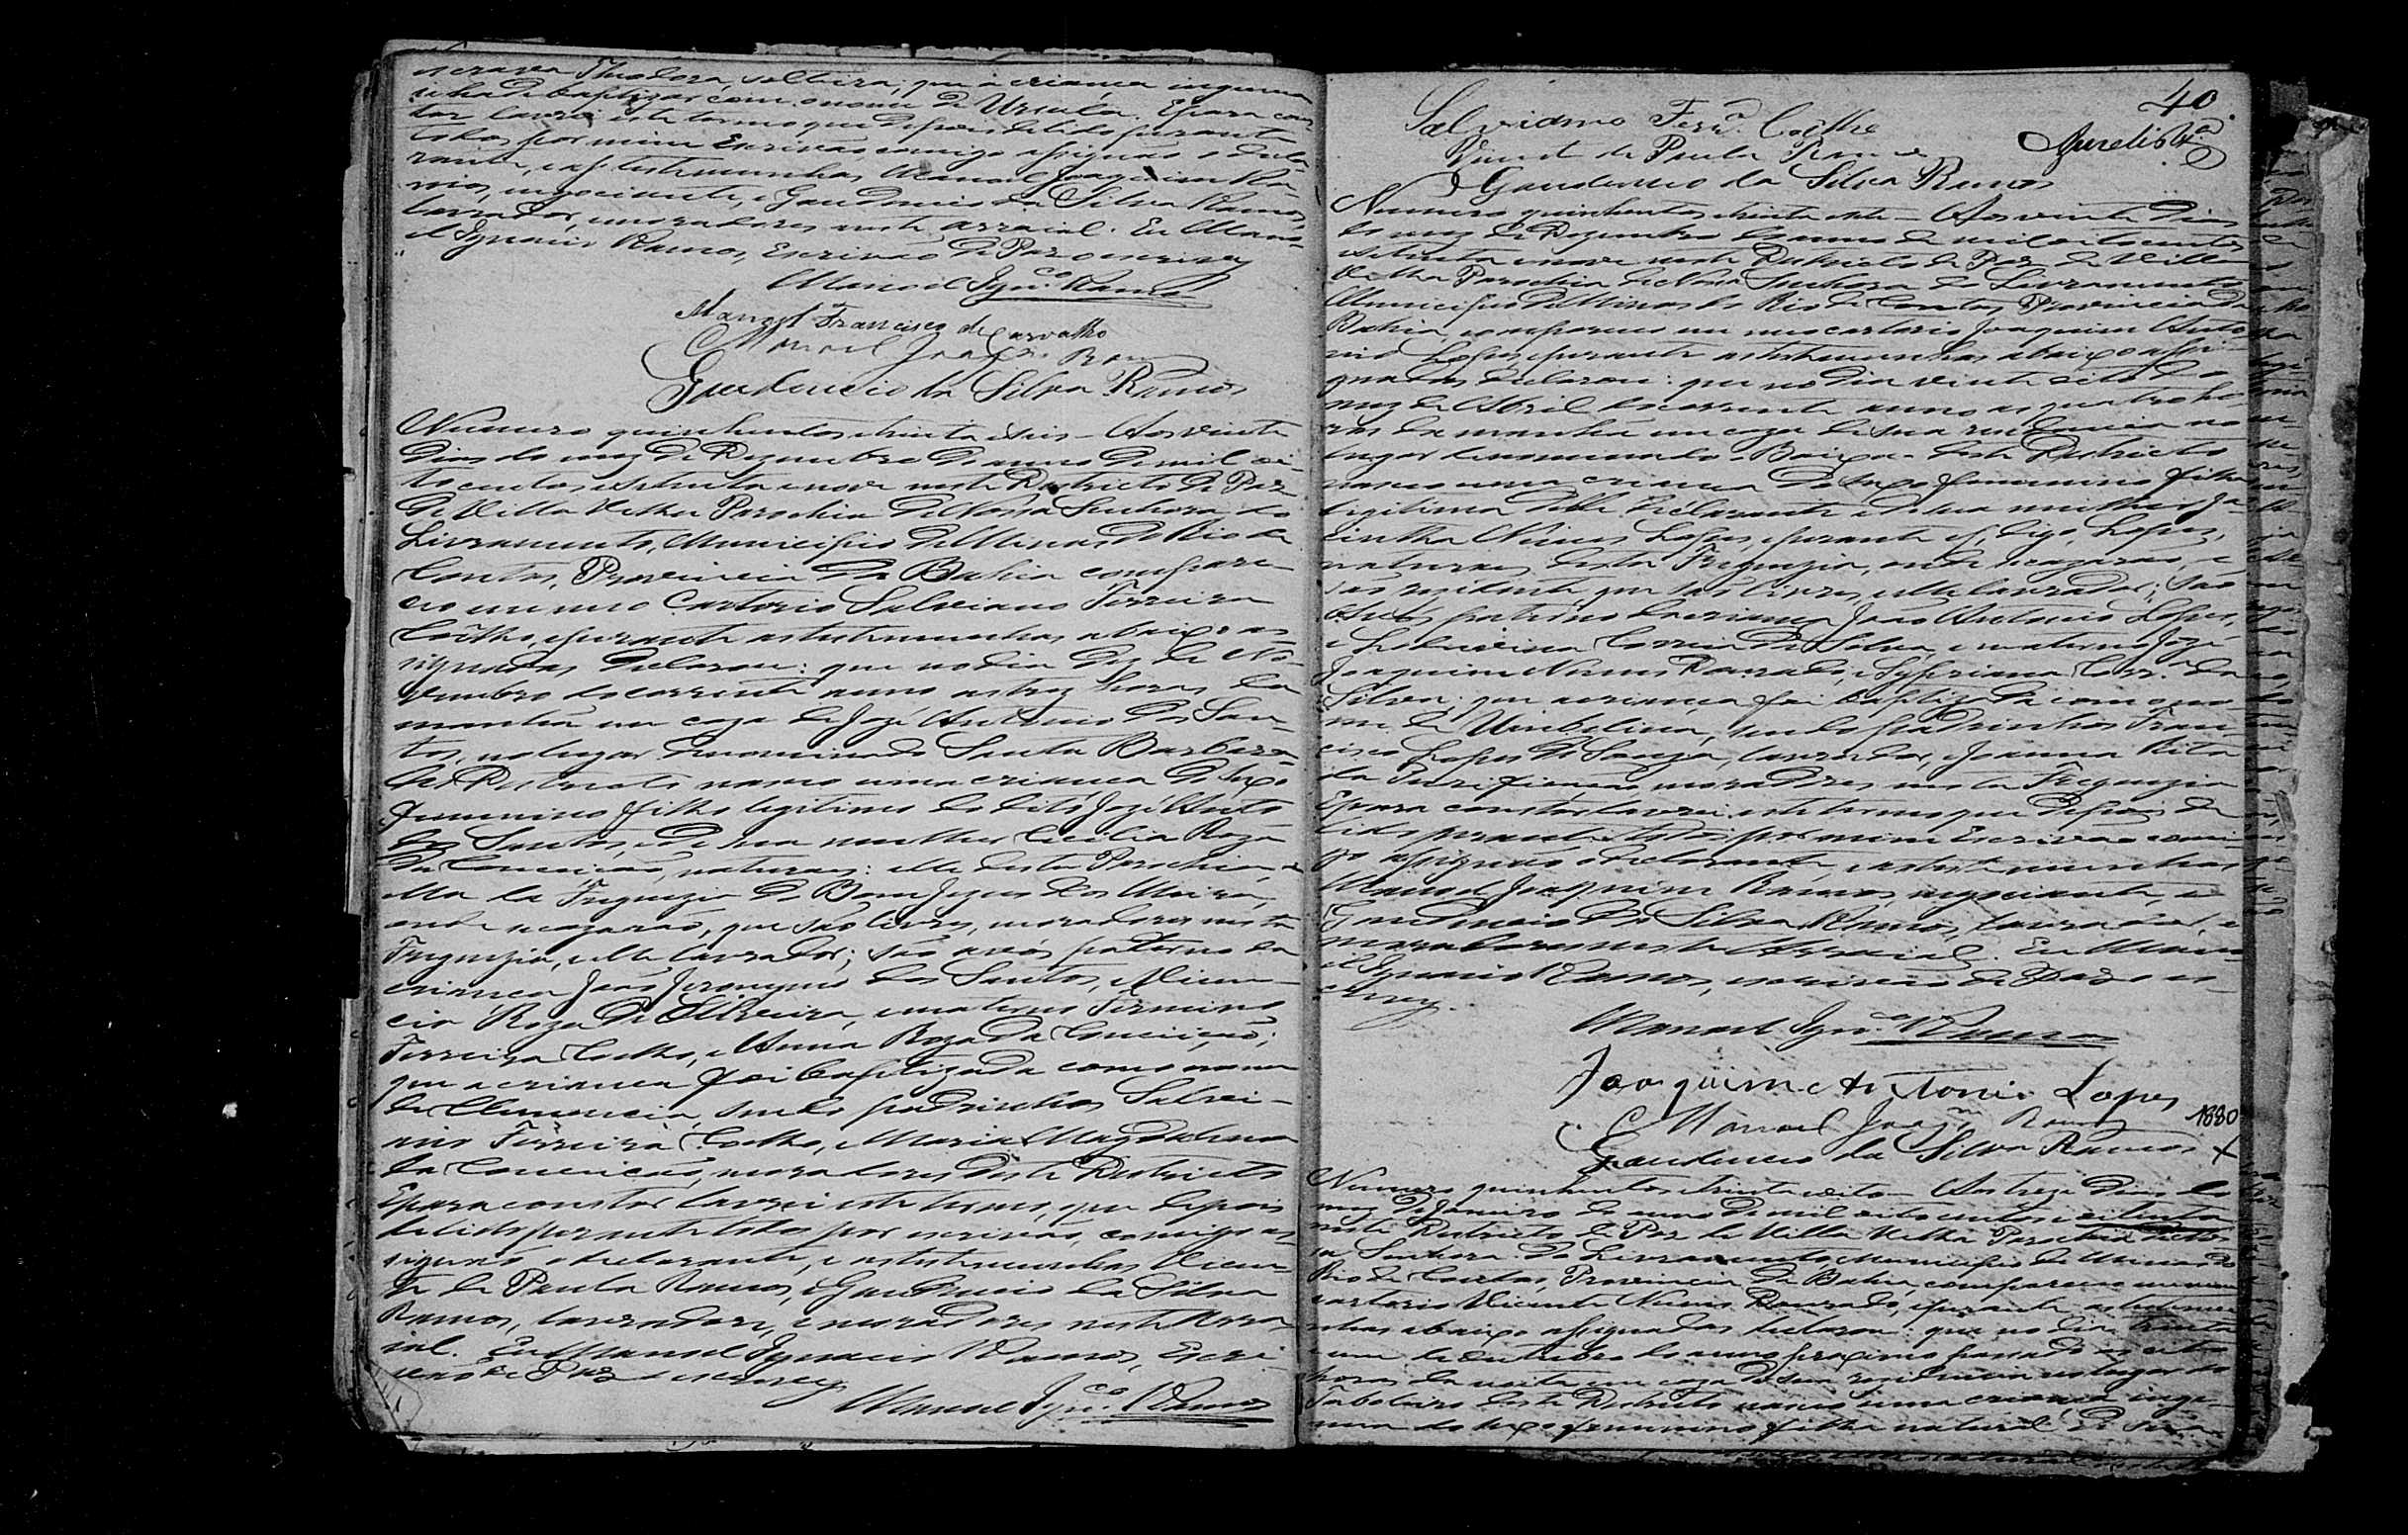 escrava Theodora, solteira; que a criança ingenua
se ha de baptizar com o nome de Ursula. E para cons
tar lavrei este termo que depois de lido perante
todos por mim Escrivão comigo assignão o decla
rante, e as testemunhas Manoel Joaquim Ra
mos, negociante, e Gaudencio da Silva Ramos,
lavrador, moradores neste arraial. Eu Mano
el Ignacio Ramos, Escrivão de Paz o escrevy
Manoel Ignco. Ramos
Manoel Francisco de Carvalho
Manoel Joaqm. Ramos
Gaudencio da Silva Ramos
Numero quinhentos e trinta e seis — Aos vinte
dias do mez de Dezembro do anno de mil oi
tocentos e setenta e nove neste Districto de Paz
de Villa Velha Parochia de Nossa Senhora do
Livramento, Municipio de Minas do Rio de
Contas, Provincia da Bahia compare
ceo em meo Cartorio Salviano Ferreira
Coêlho, e perante as testemunhas abaixo as
signadas declarou: que no dia dez de No
vembro do corrente anno as trez horas da
manhã em caza de Jozé Antonio dos San
tos, no lugar denominado Santa Barbara
deste Districto nasceo uma criança do sexo
femenino filha legitima do dito Jozé Anto
dos Santos, e de sua mulher Cecilia Roza
da Conceição, naturaes: elle desta Parochia, e
ella da Freguezia do Bom Jezus dos Meiras,
onde se cazarão, que são livres, moradores nesta
Freguezia, elle lavrador; são avós paternos da
criança João Jeronymo dos Santos, e Clemen
cia Roza de Oliveira, e maternos Firmino
Ferreira Coêlho, e Anna Roza da Conceição;
que a criança foi baptizada com o nome
de Clemencia, sendo padrinhos Salvi
ano Ferreira Coêlho, e Maria Magdalena
da Conceição, moradores deste Districto
E para constar lavrei este termo, que depois
de lido perante todos por escrivão, comigo as
signão o declarante, e as testemunhas Vicen
te de Paula Ramos, e Gaudencio da Silva
Ramos, lavradores, e moradores neste Arra
ial. Eu Manoel Ignacio Ramos, Escri
vão de Paz o escrevy
Manoel Ignco. Ramos
40
Aurelio
Salviano Ferra. Coêlho
Vicente de Paula Ramos
Gaudencio da Silva Ramos
Numero quinhentos e trinta e sete — Aos vinte dias
do mez de Dezembro do anno de mil oitocentos
e setenta e nove neste Districto de Paz de Villa
Velha Parochia de Nossa Senhora do Livramento
Municipio de Minas do Rio de Contas, Provincia da
Bahia, compareceo em meo cartorio Joaquim Anto
nio Lopes, e perante as testemunhas abaixo assi
gnadas declarou: que no dia vinte e oito do
mez de Abril do corrente anno as quatro ho
ras da manhã em caza de sua residencia no
lugar denominado Baixa deste Districto
nasceo uma criança do sexo femenino filha
legitima delle declarante e de sua mulher Ja
cintha Nunes Lopes, e perante as, digo, Lopes,
naturaes desta Freguezia, onde se cazarão, e
são rezidentes que são livres, elle lavrador; são
avós paternos da criança João Antonio Lopes,
e Correia da Silva, e maternos Jozé
Joaquim Nunes Dourado, e Corra. da
Silva; que a criança foi baptizada com o no
me de Umbelina, sendo padrinhos Fran
cisco Lopes de Souza, lavrador, e Joanna Rita
da Purificação moradores nesta Freguezia
E para constar lavrei este termo que depois de
lido perante todos por mim Escrivão comi
go assignão o declarante, e as testemunhas
Manoel Joaquim Ramos, negociante, e
Gaudencio da Silva Ramos, lavrador, e
moradores neste Arraial. Eu Mano
el Ignacio Ramos, escrivão de Paz o es
crevy.
Manoel Ignco. Ramos
Joaquim Antonio Lopes
Manoel Joaqm. Ramos
1880
Gaudencio da Silva Ramos X
Numero quinhentos e trinta e oito — Aos treze dias do
mez de Janeiro do anno de mil oitocentos e oitenta
neste Districto de Paz de Villa Velha Parochia de Nos
sa Senhora do Livramento, Municipio de Minas do
Rio de Contas, Provincia da Bahia, compareceo em meo
cartorio Vicente Nunes Dourado, e perante as testemu
nhas abaixo assignadas declarou: que no dia trinta
e um de Outubro do anno proximo passado as oito
horas da noite em caza de sua rezidencia no lugar do
Taboleiro deste Districto nasceo uma criança inge
nua do sexo femenino filha natural de sua